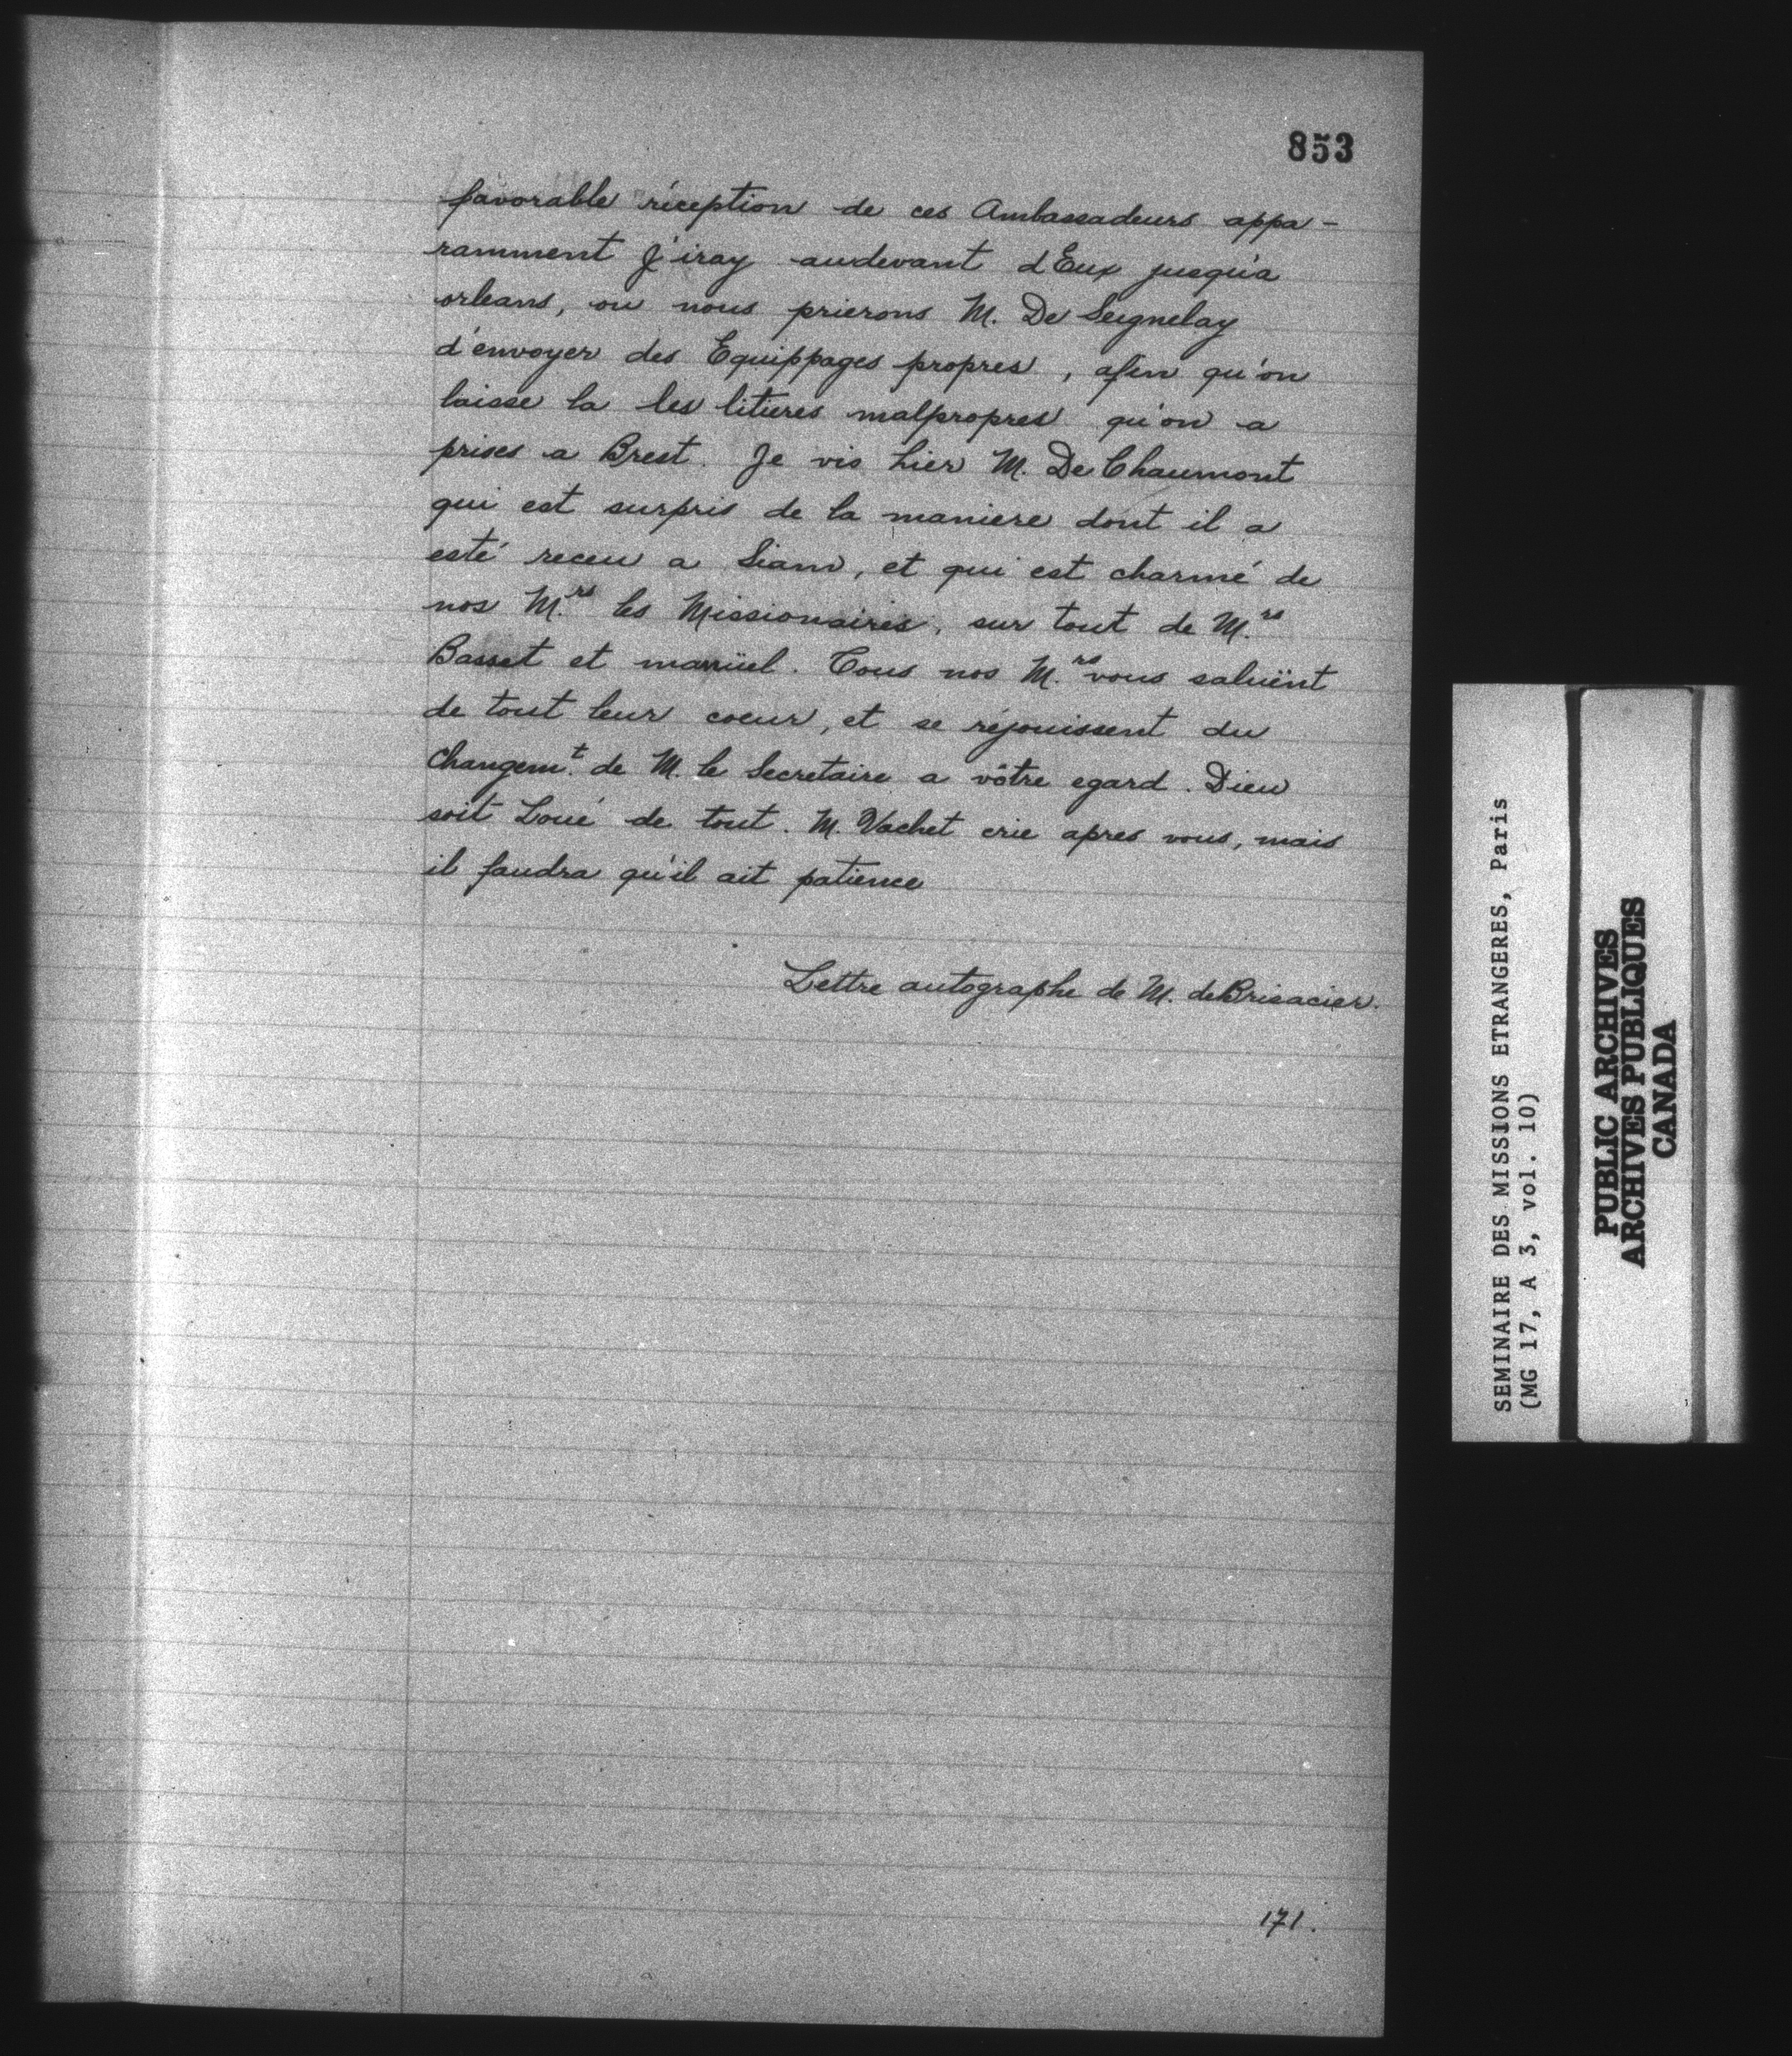 853
favorable réception de ces Ambassadeurs appa-
ramment J'iray audevant d'Eux jusqu'a
orleans, ou nous prierons M. De Seignelay
d'envoyer des Equippages propres, afin qu'on
laisse la les litieres malpropres qu'on a
prises a Brest. Je vis hier M. De Chaumont
qui est surpris de la maniere dont il a
esté receu a Siam, et qui est charmé de
nos M.rs les Missionaires, sur tout de M.rs
Basset et manüel. Tous nos M.rs vous saluënt
de tout leur coeur, et se réjouissent du
Changem.t de M. le Secretaire a vôtre egard. Dieu
soit Loué de tout. M. Vachet crie apres vous, mais
il faudra qu'il ait patience
Lettre autographe de M. de Brisacier.
171.
SEMINAIRE DES MISSIONS ETRANGERES, Paris
(MG 17, A 3, vol. 10)
PUBLIC ARCHIVES
ARCHIVES PUBLIQUES
CANADA